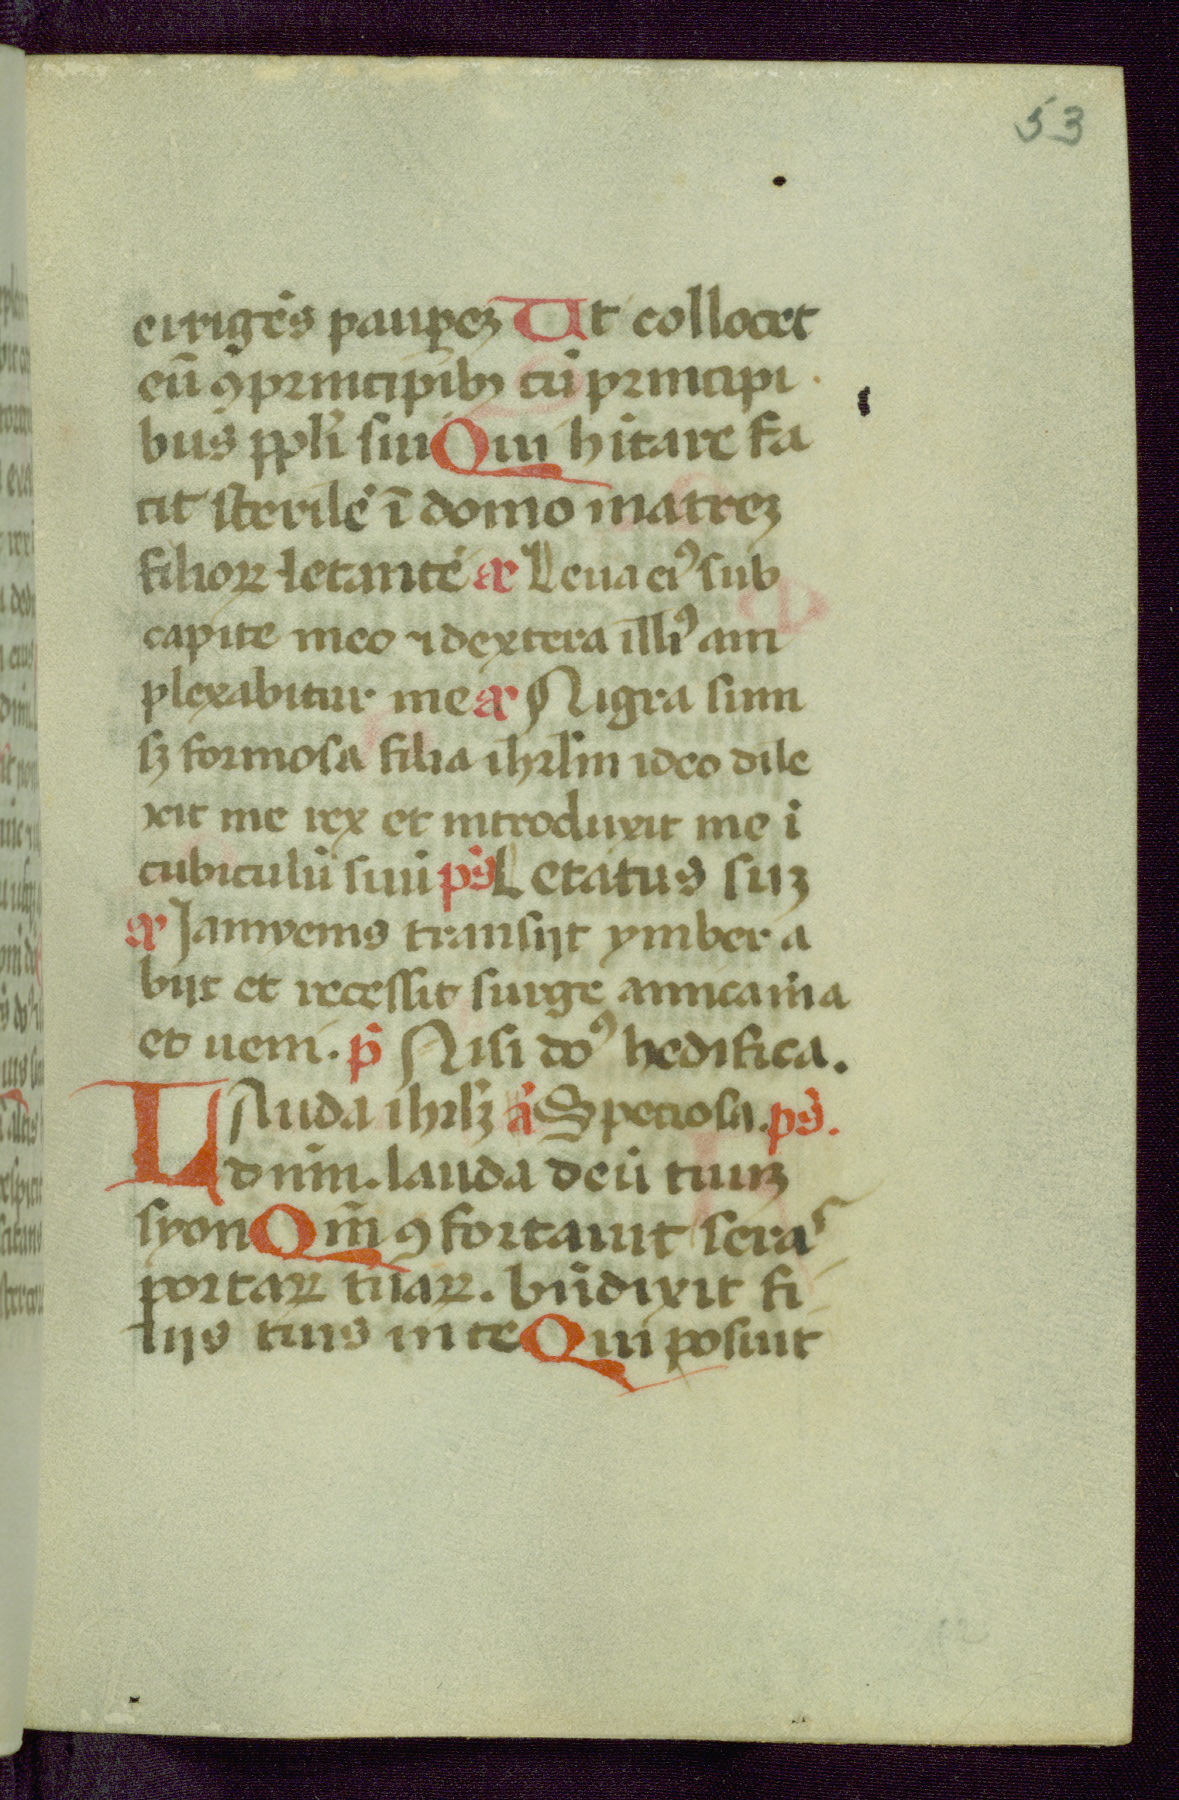 53
eirigēs paupeꝫ Ut collocet
eū ꝯprincipibꝫ cū principi
bus ppli sui Qui hītare fa
cit sterilē ī domo matreꝫ
filioꝝ letantē añ Leua eiꝰ sub
capite meo ⁊ dextera illiꝰ am
plexabitur me añ Nigra sum
sꝫ formosa filia ihrlm ideo dile
xit me rex et introduxit me ī
cubiculū suū ps̄ Letatus suꝫ
añ Jam yems transijt ymber a
bijt et recessit surge amica mia
et ueni. p̄ Nisi doꝰ hedifica.
LAuda ihrlꝫ ā Speciosa. ps̄.
dnm. lauda deū tuuꝫ
syon Qm̄ ꝯfortauit seras
portaꝝ tuaꝝ. bn̄dixit fi
lijs tuis in te Qui posuit